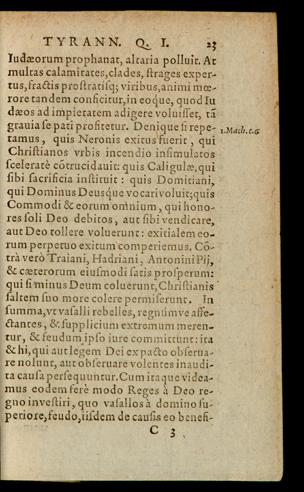 TYRANN. Q. I. 23
Iudæorum prophanat, altaria polluit. At
multas calamitates, clades, strages exper-
tus, fractis prostratisq; viribus, animi mœ-
rore tandem conficitur, in eoque, quod Iu
dæos ad impietatem adigere voluisset, tā
grauia se pati profitetur. Denique si repe-
1. Mach. c. 6
tamus, quis Neronis exitus fuerit, qui
Christianos vrbis incendio insimulatos
sceleratè cōtrucidauit: quis Caligulæ, qui
sibi sacrificia instituit: quis Domitiani,
qui Dominus Deusque vocari voluit; quis
Commodi & eorum omnium, qui hono-
res soli Deo debitos, aut sibi vendicare,
aut Deo tollere voluerunt: exitialem eo-
rum perpetuo exitum comperiemus. Cō-
trà verò Traiani, Hadriani, Antonini Pij,
& cæterorum eiusmodi satis prosperum:
qui si minus Deum coluerunt, Christianis
saltem suo more colere permiserunt. In
summa, vt vasalli rebelles, regnúmve affe-
ctantes, & supplicium extremum meren-
tur, & feudum ipso iure committunt: ita
& hi, qui aut legem Dei ex pacto obserua-
re nolunt, aut obseruare volentes inaudi-
ta causa persequuntur. Cum itaque videa-
mus eodem ferè modo Reges à Deo re-
gno inuestiri, quo vasallos à domino su-
periore, feudo, iisdem de causis eo benefi-
C 3